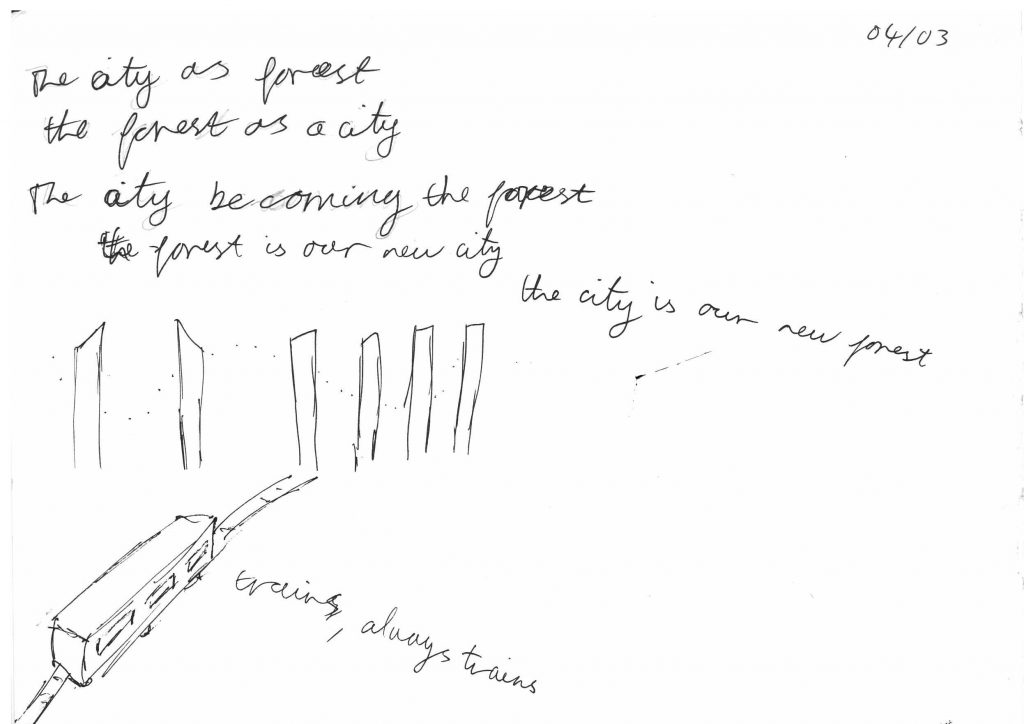 04/03
The city as forest
the forest as a city
The city becoming the forest
the forest is our new city
the city is our new forest
trains, always trains